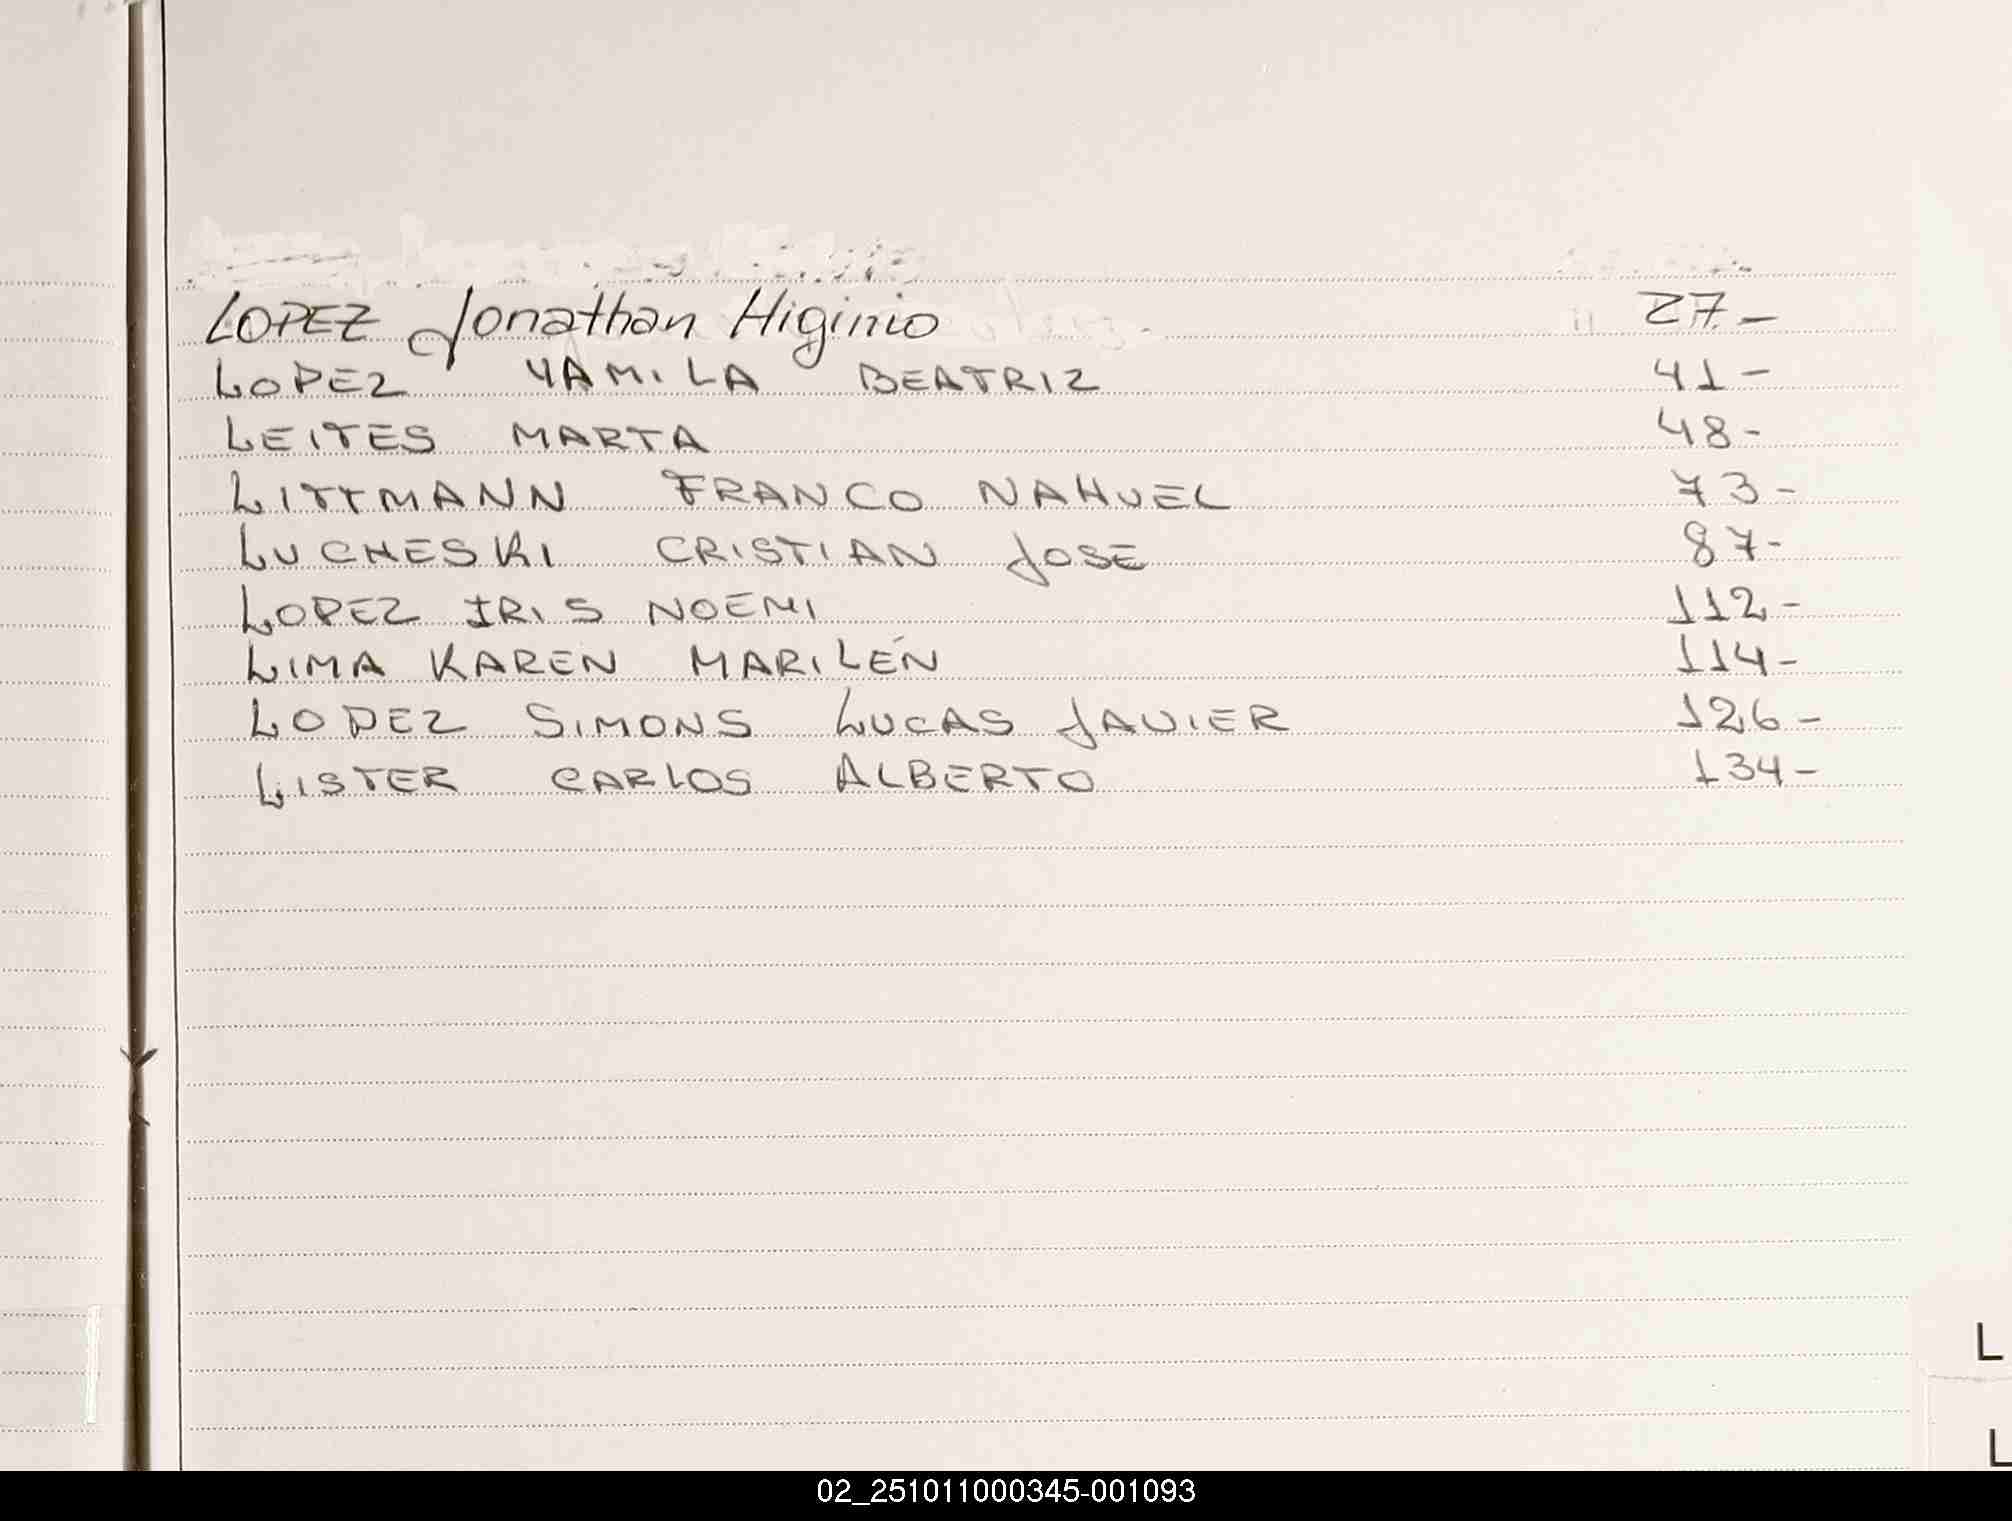 LOPEZ Jonathan Higinio 27-
LOPEZ YAMILA BEATRIZ 41-
LEITES MARTA 48-
LITTMANN FRANCO NAHUEL 73-
LUCHESKI CRISTIAN JOSE 87-
LOPEZ IRIS NOEMI 112-
LIMA KAREN MARILÉN 114-
LOPEZ SIMONS LUCAS JAVIER 126-
LISTER CARLOS ALBERTO 134-
L
L
02_251011000345-001093